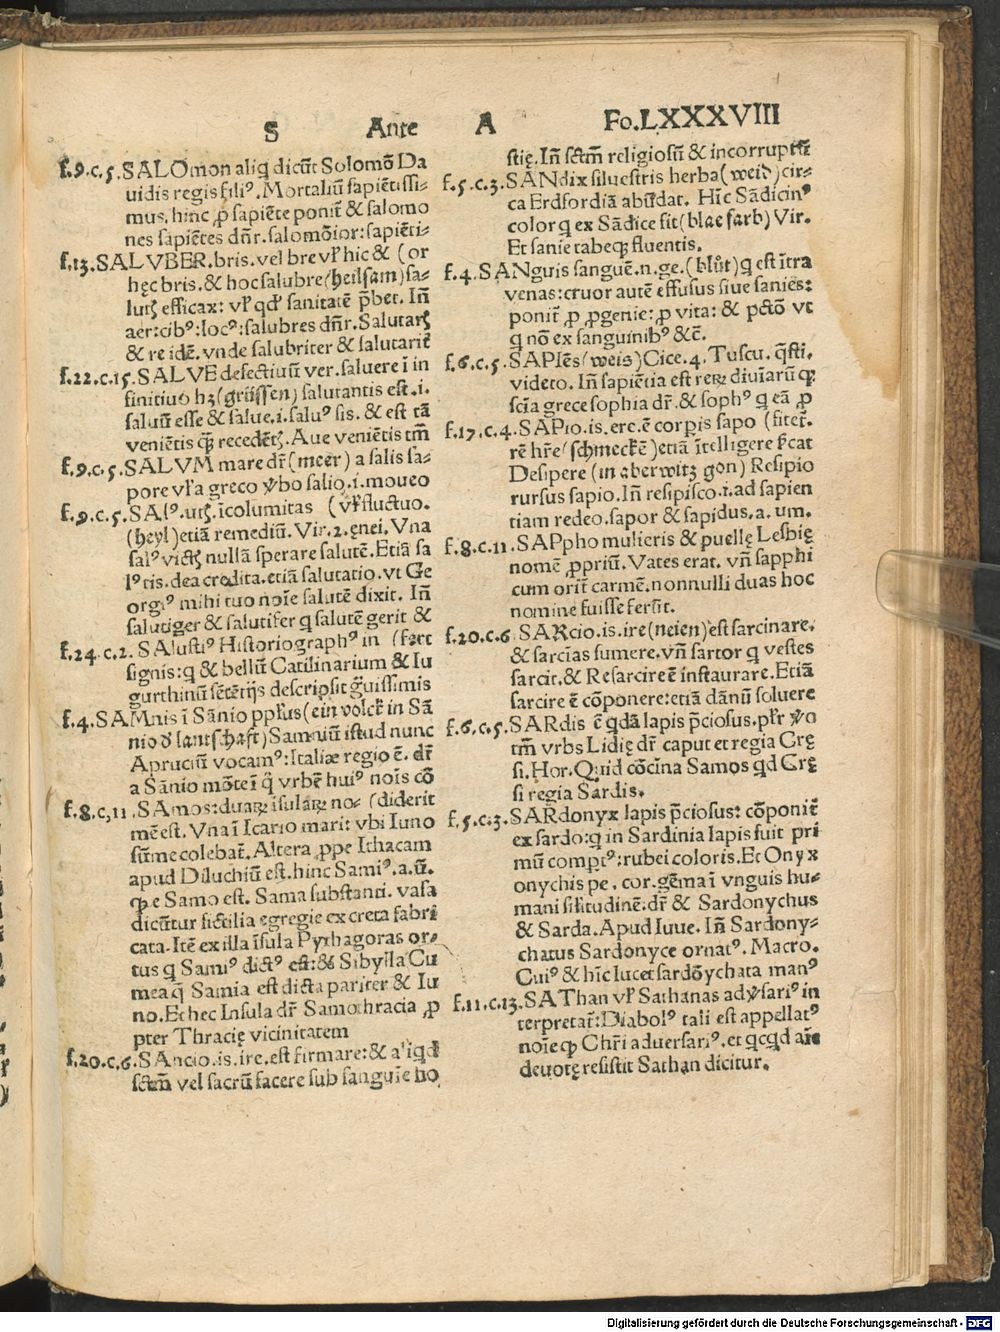 S Ante A Fo.LXXXVIII
f.9.c.5. SALOmon aliq dicūt Solomō Da
uidis regis filiꝰ. Mortaliū sapiētissi⸗
mus, hinc ꝓ sapiēte ponit̄ & salomo
nes sapiētes dn̄r. salomōior: sapiēti⸗
f.13. SALVBER. bris. vel bre vl̓ hic & (or
hęc bris. & hoc salubre (heilsam) sa⸗
lutꝭ efficax: vl̓ qđ sanitatē p̄bet. Iñ
aer: cibꝰ: locꝰ: salubres dn̄r. Salutarꝭ
& re idē. vnde salubriter & salutarit̄
f.22.c.15. SALVE defectiuū ver. saluere i in
finitiuo hꝫ (grüssen) salutantis est. i.
saluū esse & salue. i. saluꝰ sis. & est tā
veniētis qꝫ recedētꝭ. Aue veniētis tm̄
f.9.c.5. SALVM mare dr̄ (meer) a salis sa⸗
pore vl̓ a greco v̓bo salio. i. moueo
f.9.c.5. SALꝰ. utꝭ. īcolumitas (vl̓ fluctuo.
(heyl) etiā remediū. Vir. 2. ęnei. Vna
salꝰ victꝭ nullā sperare salutē. Etiā sa
lꝰ tis. dea credita. etiā salutatio. vt Ge
orgiꝰ mihi tuo noīe salutē dixit. Iñ
salutiger & salutifer q salutē gerit &
f.24.c.2. SAlustiꝰ Historiographꝰ in (fert
signis: q & bellū Catilinarium & Iu
gurthinū sētētijs descripsit grauissimis
f.4. SAMnis ī Sānio pp̄lus (ein volck in Sā
nio d̓ lantschaft) Samniū istud nunc
Apruciū vocamꝰ: Italiæ regio ē. dr̄
a Sānio mōte ī q̇ vrbē huiꝰ noīs cō
f.8.c,11. SAmos: duaꝝ īsulaꝝ no⸗ (diderit
mē est. Vna ī Icario mari: vbi Iuno
sūme colebat̄. Altera ꝓpe Ithacam
apud Diluchiū est. hinc Samiꝰ. a. ū.
qꝫ e Samo est. Sama substanti. vasa
dicūtur fictilia egregie ex creta fabri
cata. Itē ex illa īsula Pythagoras or⸗
tus q Samiꝰ dictꝰ est: & Sibylla Cu
mea q̄ Samia est dicta pariter & Iu
no. Et hec Insula dr̄ Samothracia ꝓ
pter Thracię vicinitatem
f.20.c.6. SAncio. is. ire. est firmare: & aliqđ
sctm̄ vel sacrū facere sub sanguīe ho
stię. Iñ sctm̄ religiosū & incorruptū
f.5.c.3. SANdix siluestris herba (weid) cir⸗
ca Erdfordiā abūdat. Hīc Sādicinꝰ
color q ex Sādice fit (blae farb) Vir.
Et sanie tabeqꝫ fluentis.
f.4. SANguis sanguē. n. ge. (blůt) q est ītra
venas: cruor autē effusus siue sanies:
ponit̄ ꝓ ꝓgenie: ꝓ vita: & pctō vt
q nō ex sanguinibꝰ &c̄.
f.6.c.5. SAPIēs (weis) Cice. 4. Tuscu. q̄sti.
videto. Iñ sapiētia est reꝝ diuīarū qꝫ
scīa grece sophia dr̄. & sophꝰ q eā ꝓ
f.17.c.4. SAPio. is. ere. ē corꝑis sapo (fitet̄.
rē hr̄e (schmeckē) etiā ītelligere p̄cat
Desipere (in aberwitz gon) Resipio
rursus sapio. Iñ resipisco. i. ad sapien
tiam redeo. sapor & sapidus. a. um.
f.8.c.11. SAPpho mulieris & puellę Lesbię
nomē ꝓpriū. Vates erat. vñ sapphi
cum orit̄ carmē. nonnulli duas hoc
nomine fuisse ferūt.
f.20.c.6 SARcio. is. ire (neien) est sarcinare.
& sarcīas sumere. vñ sartor q vestes
sarcit. & Resarcire ē instaurare. Etiā
sarcire ē cōponere: etiā dānū soluere
f.6.c.5. SARdis ē qdā lapis p̄ciosus. pl̓r v̓o
tm̄ vrbs Lidię dr̄ caput et regia Crę
si. Hor. Quid cōcīna Samos qđ Crę
si regia Sardis.
f.5.c.3. SARdonyx lapis p̄ciosus: cōponit̄
ex sardo: q in Sardinia lapis fuit pri
mū comptꝰ: rubei coloris. Et Onyx
onychis pe. cor. gēma ī vnguis hu⸗
mani sil̓itudinē. dr̄ & Sardonychus
& Sarda. Apud Iuue. Iñ Sardony⸗
chatus Sardonyce ornatꝰ. Macro.
Cuiꝰ & hīc lucet sardōychata manꝰ
f.11.c.13. SAThan vl̓ Sathanas adv̓sariꝰ in
terpretat̄: Diabolꝰ tali est appellatꝰ
noīe qꝫ Chr̄i aduersariꝰ. et qcqđ aīe
deuotę resistit Sathan dicitur.
Digitalisierung gefördert durch die Deutsche Forschungsgemeinschaft - DFG